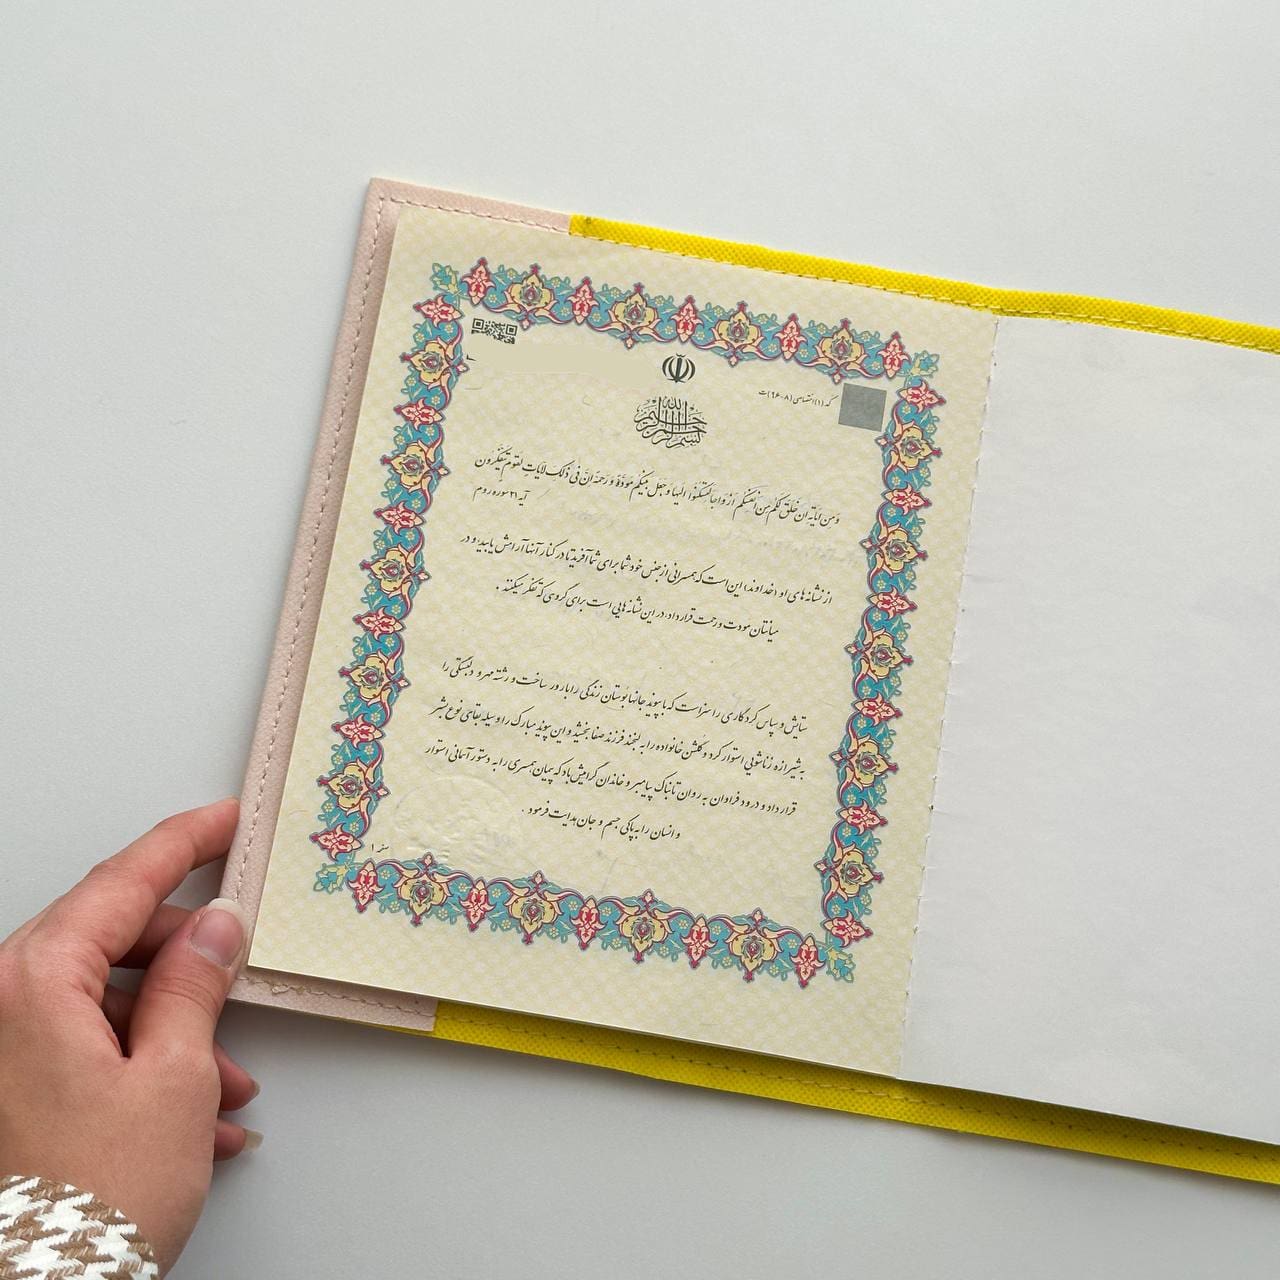 بسم الله الرحمن الرحیم
وَمِن ایاتِهِ اَن خَلَقَ لَکُم مِن اَنفُسِکُم اَزواجاً لِتَسکُنُوا اِلَیها وَ جَعَلَ بَینَکُم مَوَدَّةً وَ رَحمَةً اِنَّ فی ذلِکَ لَایاتٍ لِقَومٍ یَتَفَکَّرُون
آیه ۲۱ سوره روم
از نشانه های او (خداوند) این است که همسرانی از جنس خود شما برای شما آفرید تا در کنار آنها آرامش یابید و در
میانتان مودت و رحمت قرار داد، در این نشانه هایی است برای گروهی که تفکر میکنند .
ستایش و سپاس کردگاری را سزاست که با پیوند جانها بوستان زندگی را بارور ساخت و رشته مهر و دلبستگی را
به شیرازه زناشویی استوار کرد و گلشن خانواده را به لبخند فرزند صفا بخشید و این پیوند مبارک را وسیله بقای نوع بشر
قرار داد و درود فراوان به روان تابناک پیامبر و خاندان گرامیش باد که پیمان همسری را به دستور آسمانی استوار
و انسان را به پاکی جسم و جان هدایت فرمود .
صفحه ۱